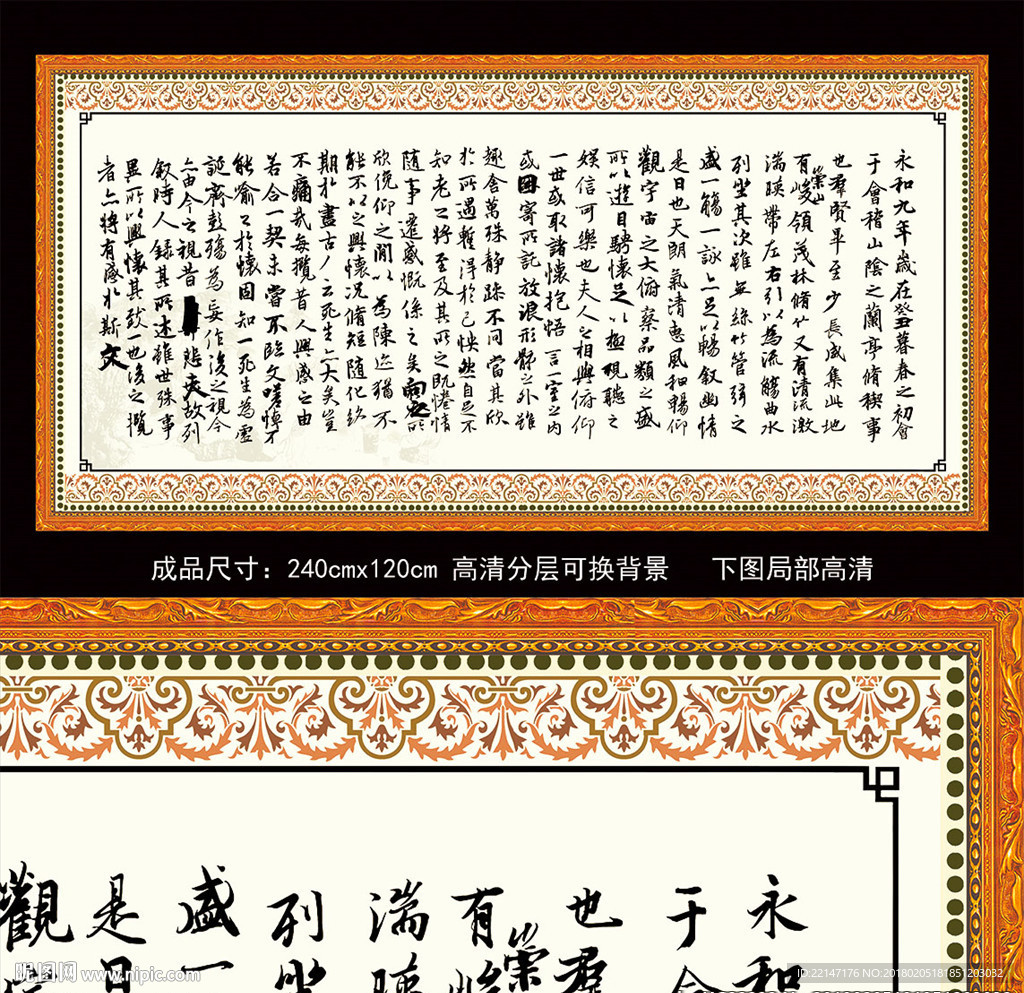 永和九年歲在癸丑暮春之初會
于會稽山陰之蘭亭脩稧事
也羣賢畢至少長咸集此地
有崇山峻領茂林脩竹又有清流激
湍暎帶左右引以為流觴曲水
列坐其次雖無絲竹管弦之
盛一觴一詠亦足以暢叙幽情
是日也天朗氣清惠風和暢仰
觀宇宙之大俯察品類之盛
所以遊目騁懷足以極視聽之
娛信可樂也夫人之相與俯仰
一世或取諸懷抱悟言一室之內
或因寄所託放浪形骸之外雖
趣舍萬殊靜躁不同當其欣
於所遇暫得於己怏然自足不
知老之將至及其所之既惓情
隨事遷感慨係之矣向之所
欣俛仰之間以為陳迹猶不
能不以之興懷況脩短隨化終
期於盡古人云死生亦大矣豈
不痛哉每攬昔人興感之由
若合一契未嘗不臨文嗟悼不
能喻之於懷固知一死生為虛
誕齊彭殤為妄作後之視今
亦由今之視昔悲夫故列
叙時人錄其所述雖世殊事
異所以興懷其致一也後之攬
者亦將有感於斯文
成品尺寸：240cmx120cm 高清分层可换背景 下图局部高清
永和
于會
也羣
有崇峻
湍暎
列坐
盛一
是日
觀
昵图网 www.nipic.com
ID:22147176 NO:20180205181851203032